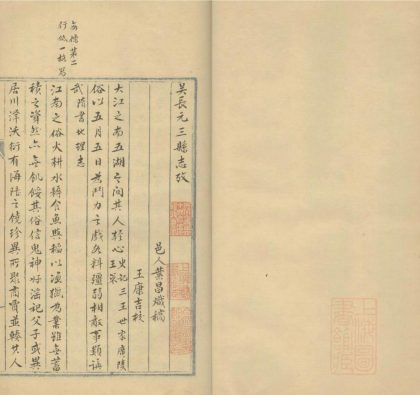 吳長元三縣志攷
邑人葉昌熾
王康吉校
大江之南五湖之間其人輕心 史記三王世家廣陵王策
俗以五月五日為鬥力之戲各料彊弱相敵事類講
武隋書地理志
江南之俗火耕水耨食魚與稻以漁獵為業雖無蓄
積之資然亦無飢餒其俗信鬼神好淫祀父子或異
居川澤沃衍有海陸之饒珍異所聚商賈並輳其人
每標第二
行低一格寫
上海圖
書館藏